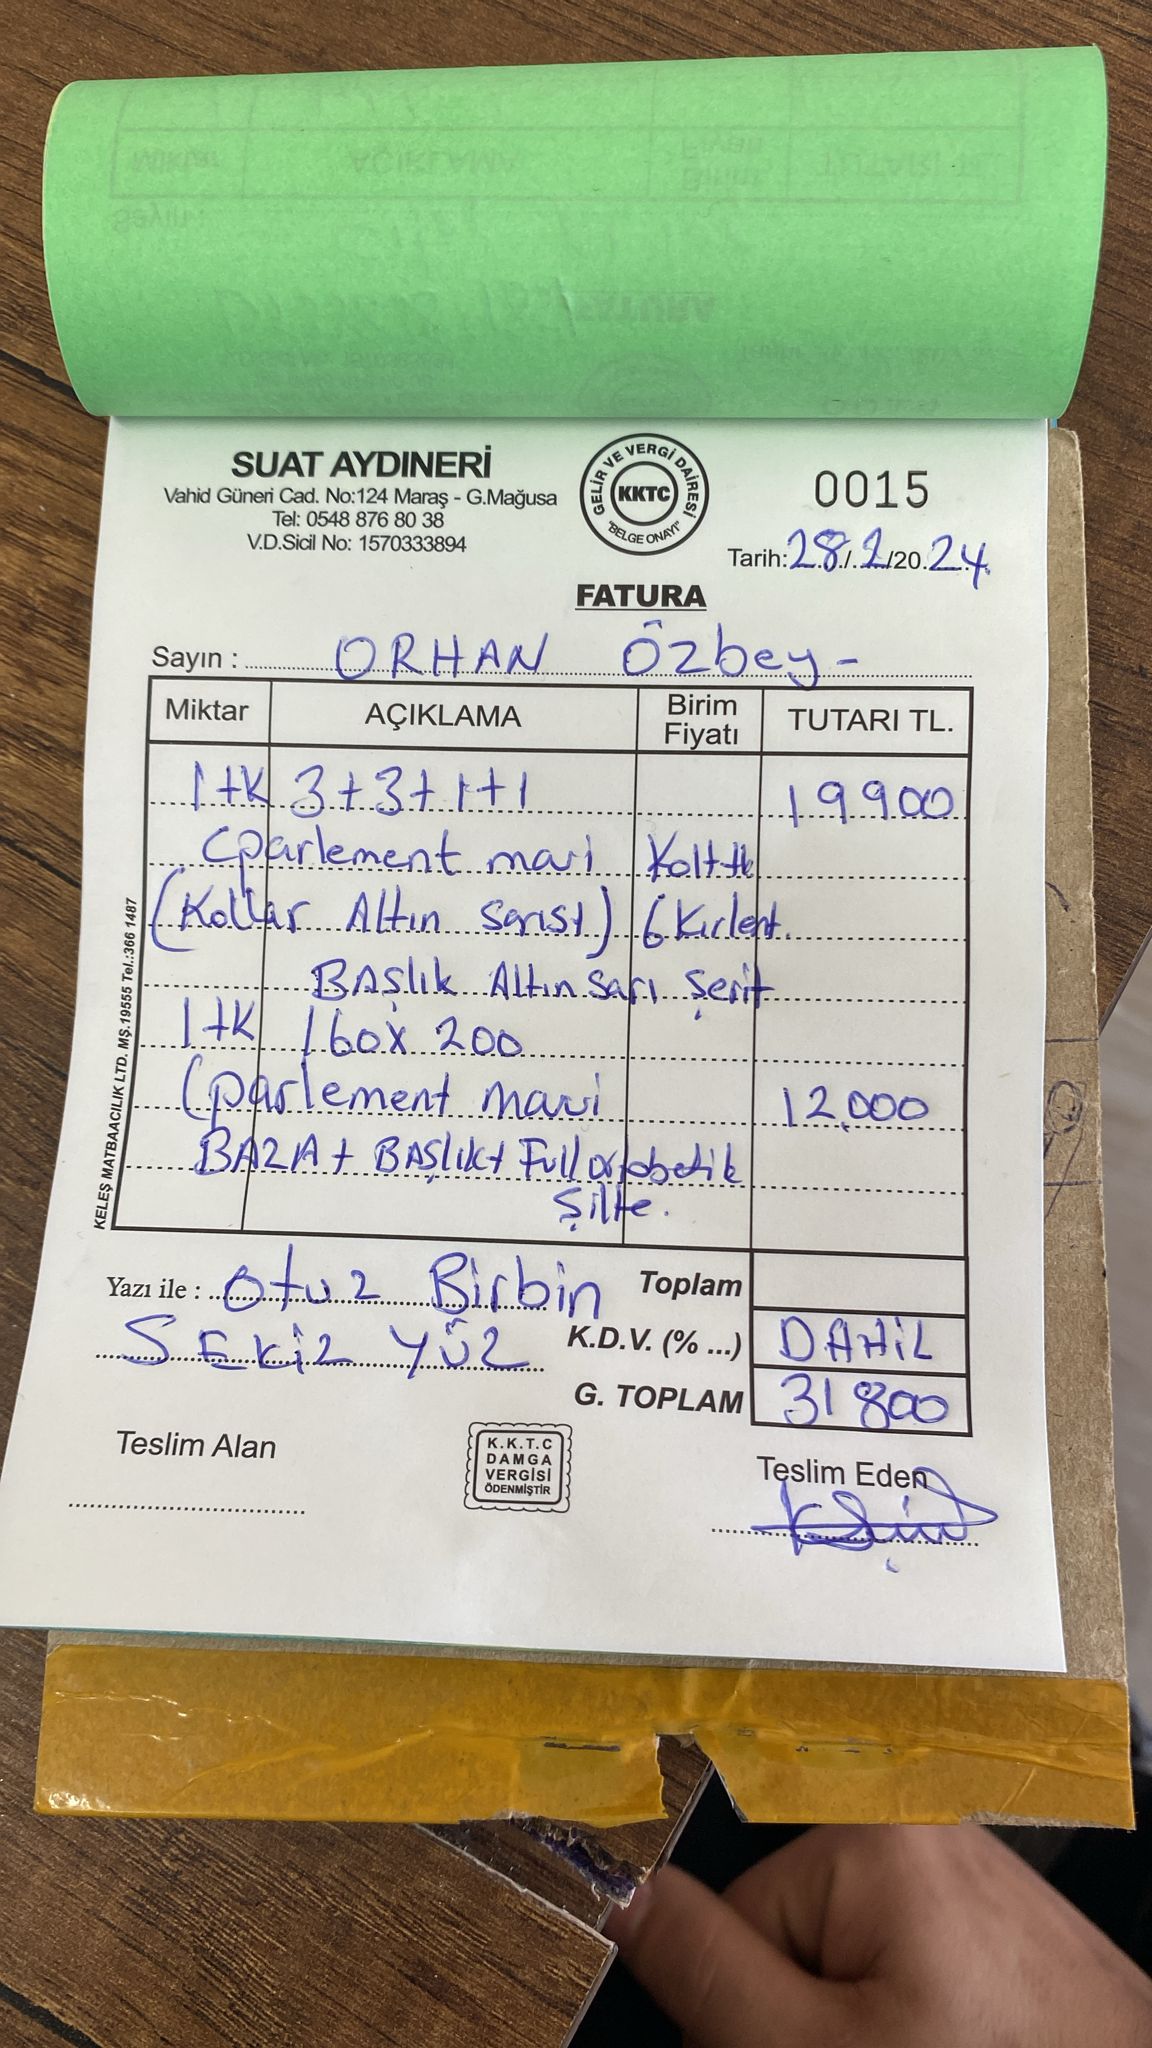 SUAT AYDINERİ
Vahid Güneri Cad. No:124 Maraş - G.Mağusa
Tel: 0548 876 80 38
V.D.Sicil No: 1570333894
GELİR VE VERGİ DAİRESİ
KKTC
"BELGE ONAYI"
0015
Tarih: 28/2/2024
FATURA
Sayın : ORHAN Özbey-
Miktar AÇIKLAMA Birim Fiyatı TUTARI TL.
1 tk 3+3+1+1 19900
(parlement mavi Koltuk
(Kollar Altın Sarısı) 6 Kırlent.
BAŞlık Altın Sarı Şerit
1 tk 160x 200
(parlement mavi 12.000
BAZA + BAŞLIK+ Full ortobetik
Şilte.
KELEŞ MATBAACILIK LTD. MŞ.19555 Tel.:366 1487
Yazı ile : otuz Birbin Toplam
SEKİZ YÜZ K.D.V. (% ...) DAHİL
G. TOPLAM 31800
Teslim Alan
K.K.T.C
DAMGA
VERGİSİ
ÖDENMİŞTİR
Teslim Eden